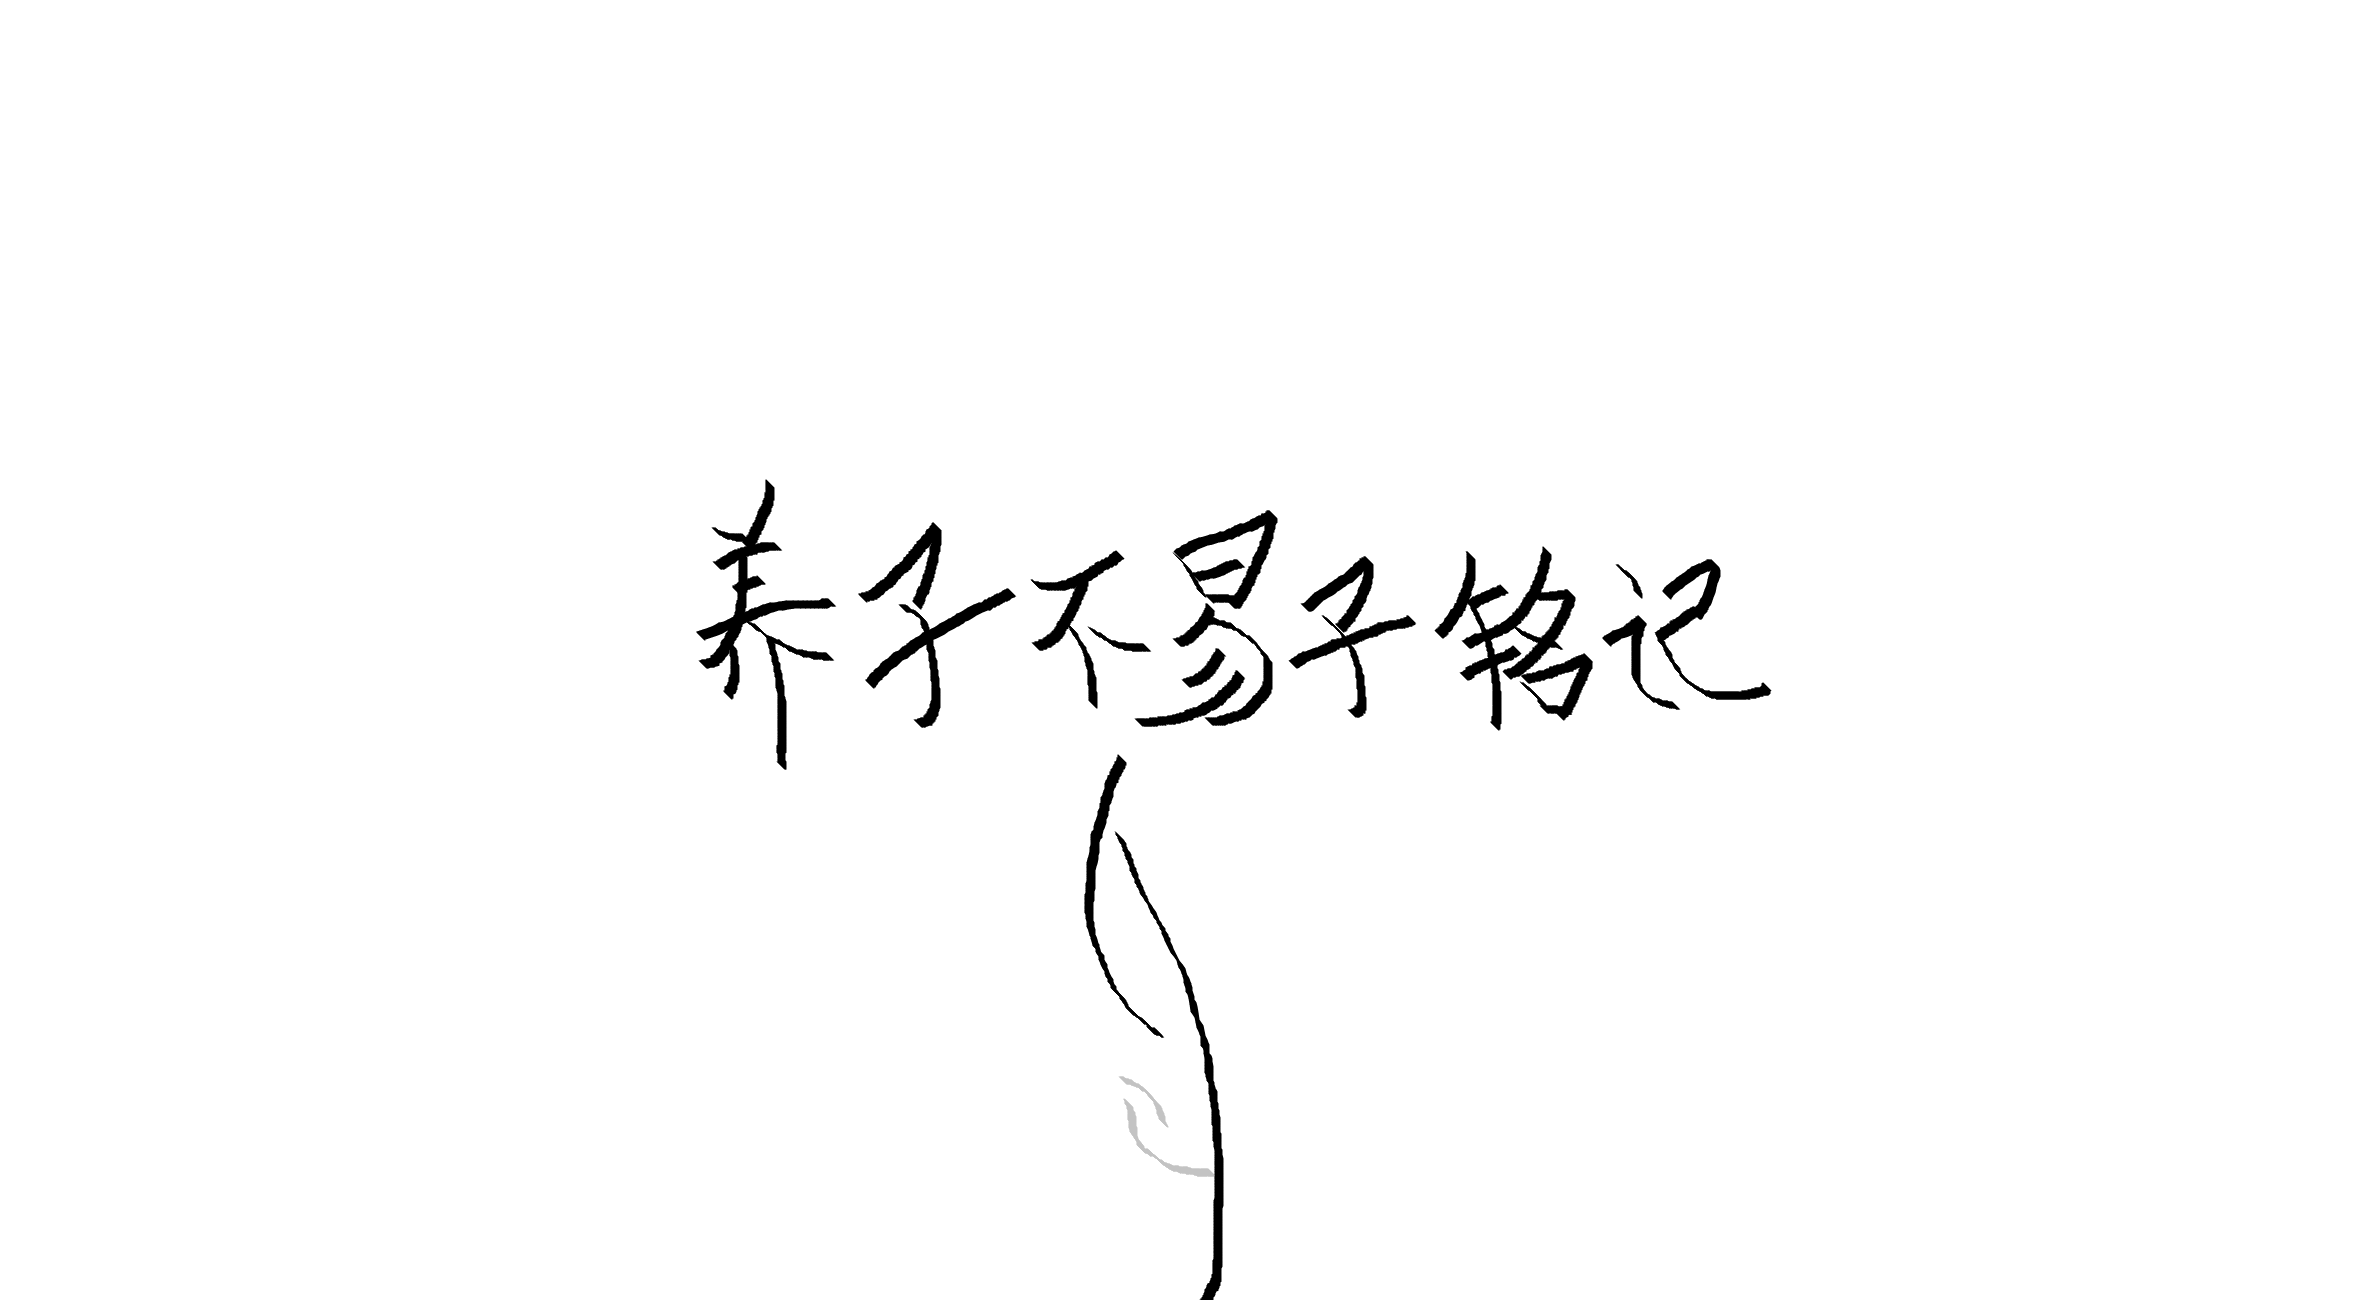 养子不易子铭记